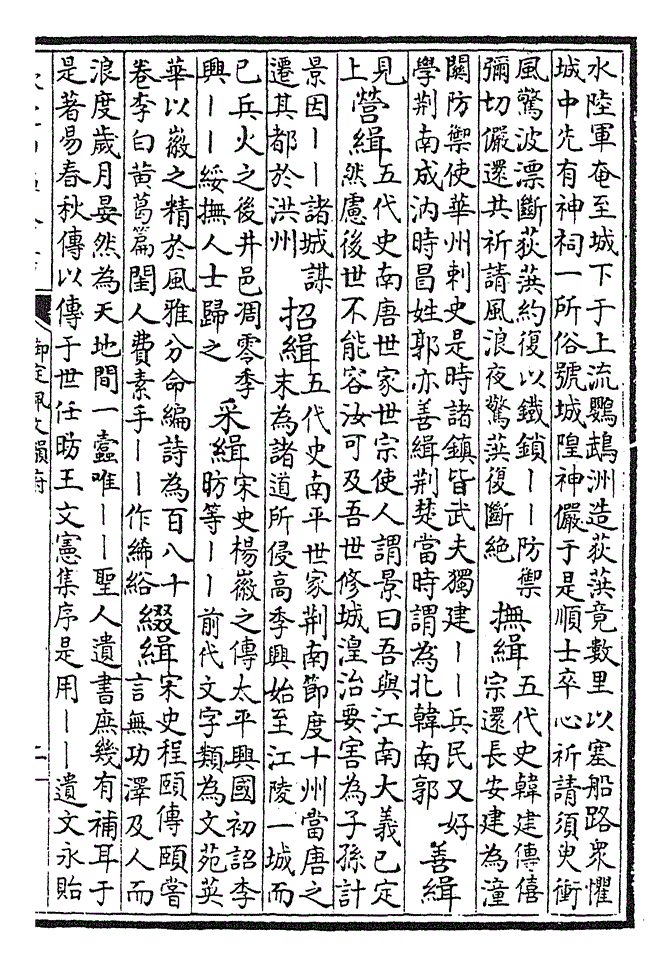 水陸軍奄至城下于上流鸚鵡洲造荻葓竟數里以塞船路衆懼
城中先有神祠一所俗號城隍神儼于是順士卒心祈請須臾衝
風驚波漂斷荻葓約復以鐵鎖——防禦
彌切儼還共祈請風浪夜驚葓復斷絶
撫緝
五代史韓建傳僖
宗還長安建為潼
關防禦使華州刺史是時諸鎮皆武夫獨建——兵民又好
學荆南成汭時昌姓郭亦善緝荆楚當時謂為北韓南郭
善緝
見
上
營緝
五代史南唐世家世宗使人謂景曰吾與江南大義已定
然慮後世不能容汝可及吾世修城湟治要害為子孫計
景因——諸城謀
遷其都於洪州
招緝
五代史南平世家荆南節度十州當唐之
末為諸道所侵高季興始至江陵一城而
已兵火之後井邑凋零季
興——綏撫人士歸之
采緝
宋史楊徽之傳太平興國初詔李
昉等——前代文字類為文苑英
華以徽之精於風雅分命編詩為百八十
卷李白黄葛篇閨人費素手——作絺綌
綴緝
宋史程頤傳頤嘗
言無功澤及人而
浪度歲月晏然為天地間一蠧唯——聖人遺書庶幾有補耳于
是著易春秋傳以傳于世任昉王文憲集序是用——遺文永貽
御定佩文韻府